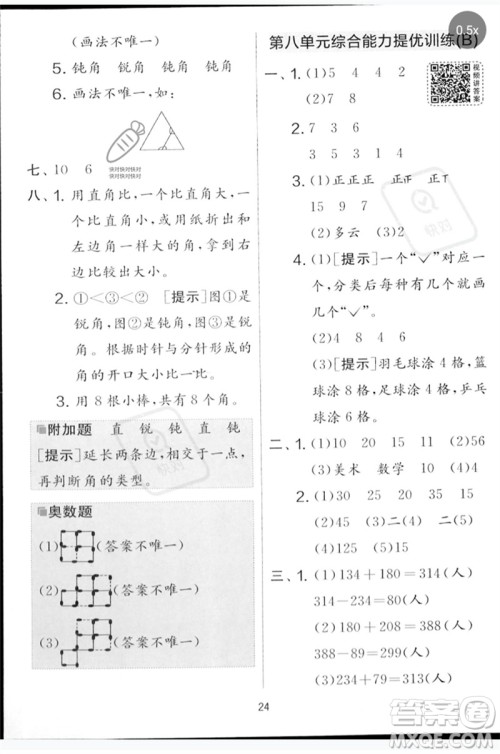 (画法不唯一)
5. 钝角 锐角 钝角 钝角
6. 画法不唯一,如
快对快对快对
快对快对快对
七、10 6
八、1. 用直角比,一个比直角大,一个
比直角小,或用纸折出和
左边角一样大的角,与右
边的比较出大小。
2. ①<③<② [提示]图①是
锐角,图②是钝角,图③是直
角。根据时针与分针形成的
角的开口大小进行比较。
3. 用 8 根小棒,共有 8 个角。
附加题 直 锐 钝 直 钝
[提示]延长两条边,相交于一点,
再判断角的类型。
奥数题
(1) (答案不唯一)
(2) (答案不唯一)
(3) (答案不唯一)
第八单元综合能力提优训练(B)
0.5x
视频讲答案
一、1. (1)5 4 2
(2)7 8
2. 6 3 7 8
3 5 3 1
3. (1)正正正 正 正 正
15 9 7
(2)多云 (3)2
4. (1)[提示]一个“✓”对应一
个,分类后每种有几个就画几
个“✓”。
(2)4
(3)[提示]羽毛球涂 4 格,篮
球涂 8 格,足球涂 6 格,乒乓
球涂 5 格。
二、1. (1)10 20 15 11 (2)56
(3)美术 数学 10 10
2. (1)30 25 40 30
(2)(3)略
(4)125 (5)15
三、1. (1)134+180=314(人)
314-234=80(人)
(2)234+154=388(人)
388-89=299(人)
(3)234+79=313(人)
快对
答案
MXQE.COM
24